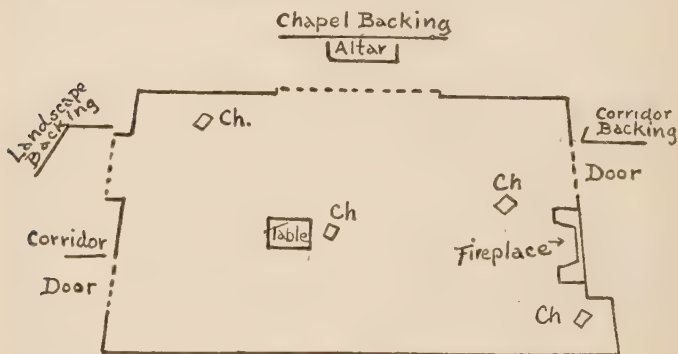 Chapel Backing
Altar
Landscape
Backing
Ch.
Corridor
Backing
Door
Ch
Ch
Table
Corridor
Fireplace
Door
Ch